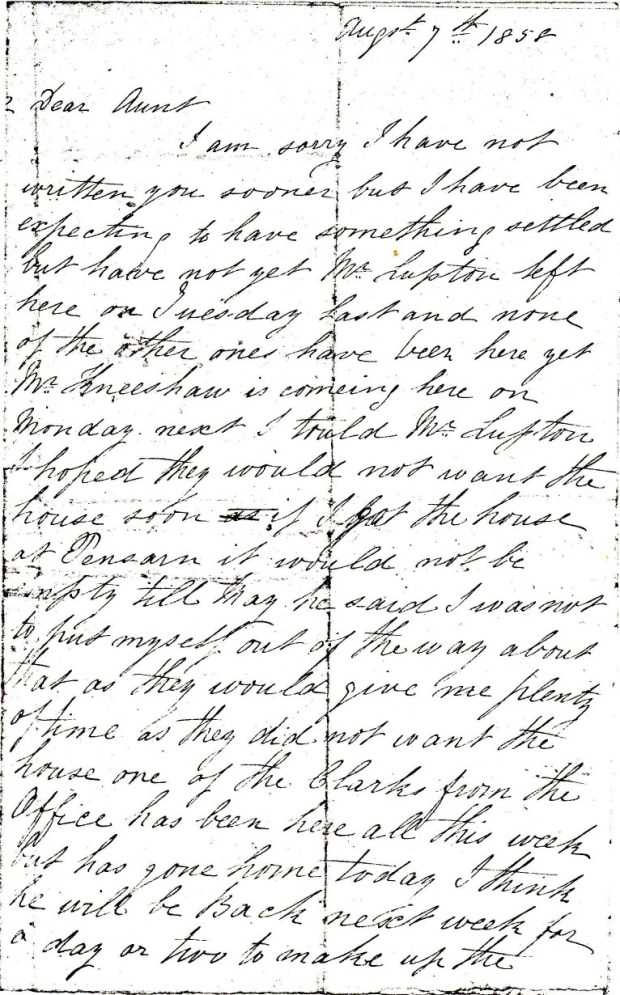 Augst 7th 1858
Dear Aunt
I am sorry I have not
written you sooner but I have been
expecting to have something settled
but have not yet Mr Lupton left
here on Tuesday last and none
of the other ones have been here yet
Mr Kneeshaw is comeing here on
Monday next I tould Mr Lupton
I hoped they would not want the
house soon if I gat the house
at Pensarn it would not be
empty till May he said I was not
to put myself out of the way about
that as they would give me plenty
of time as they did not want the
house one of the Clarks from the
Office has been here all this week
but has gone home today I think
he will be Back next week for
a day or two to make up the